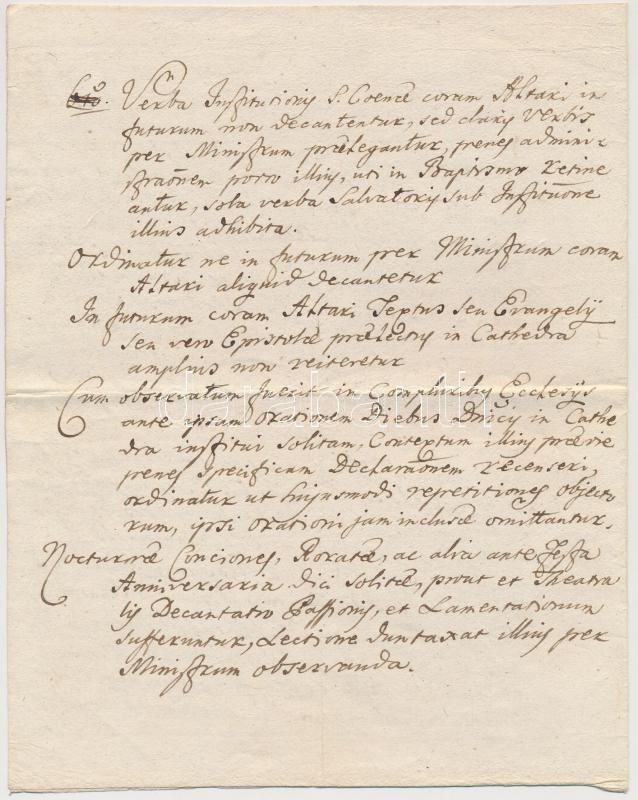 6to. Verba Institutionis S. Coenæ coram Altari in
futurum non decantentur, sed claris verbis
per Ministrum prælegantur, penes admini-
straōnem porro illius, uti in Baptismo retine
antur, sola verba Salvatoris sub Institūone
illius adhibita.
Ordinatur ne in futurum per Ministrum coram
Altari aliquid decantetur
In futurum coram Altari Textus seu Evangelij
seu vero Epistolæ prælectus in Cathedra
amplius non reiteretur
Cum observatum fuerit in Compluribus Ecclesijs
ante ipsam orationem Diebus Dnicis in Cathe
dra institui solitam, Contextum illius præviæ
penes specificam Declaraōnem recenseri,
ordinatur ut hujusmodi repetitiones objecto
rum, ipsi orationi jam inclusæ omittantur.
Nocturnæ Conciones, Roratæ, ac alia ante Festa
Anniversaria dici solitæ, prout et Theatra
lis Decantatio Passionis, et Lamentationum
sufferuntur, Lectione duntaxat illius per
Ministrum observanda.
darabanth